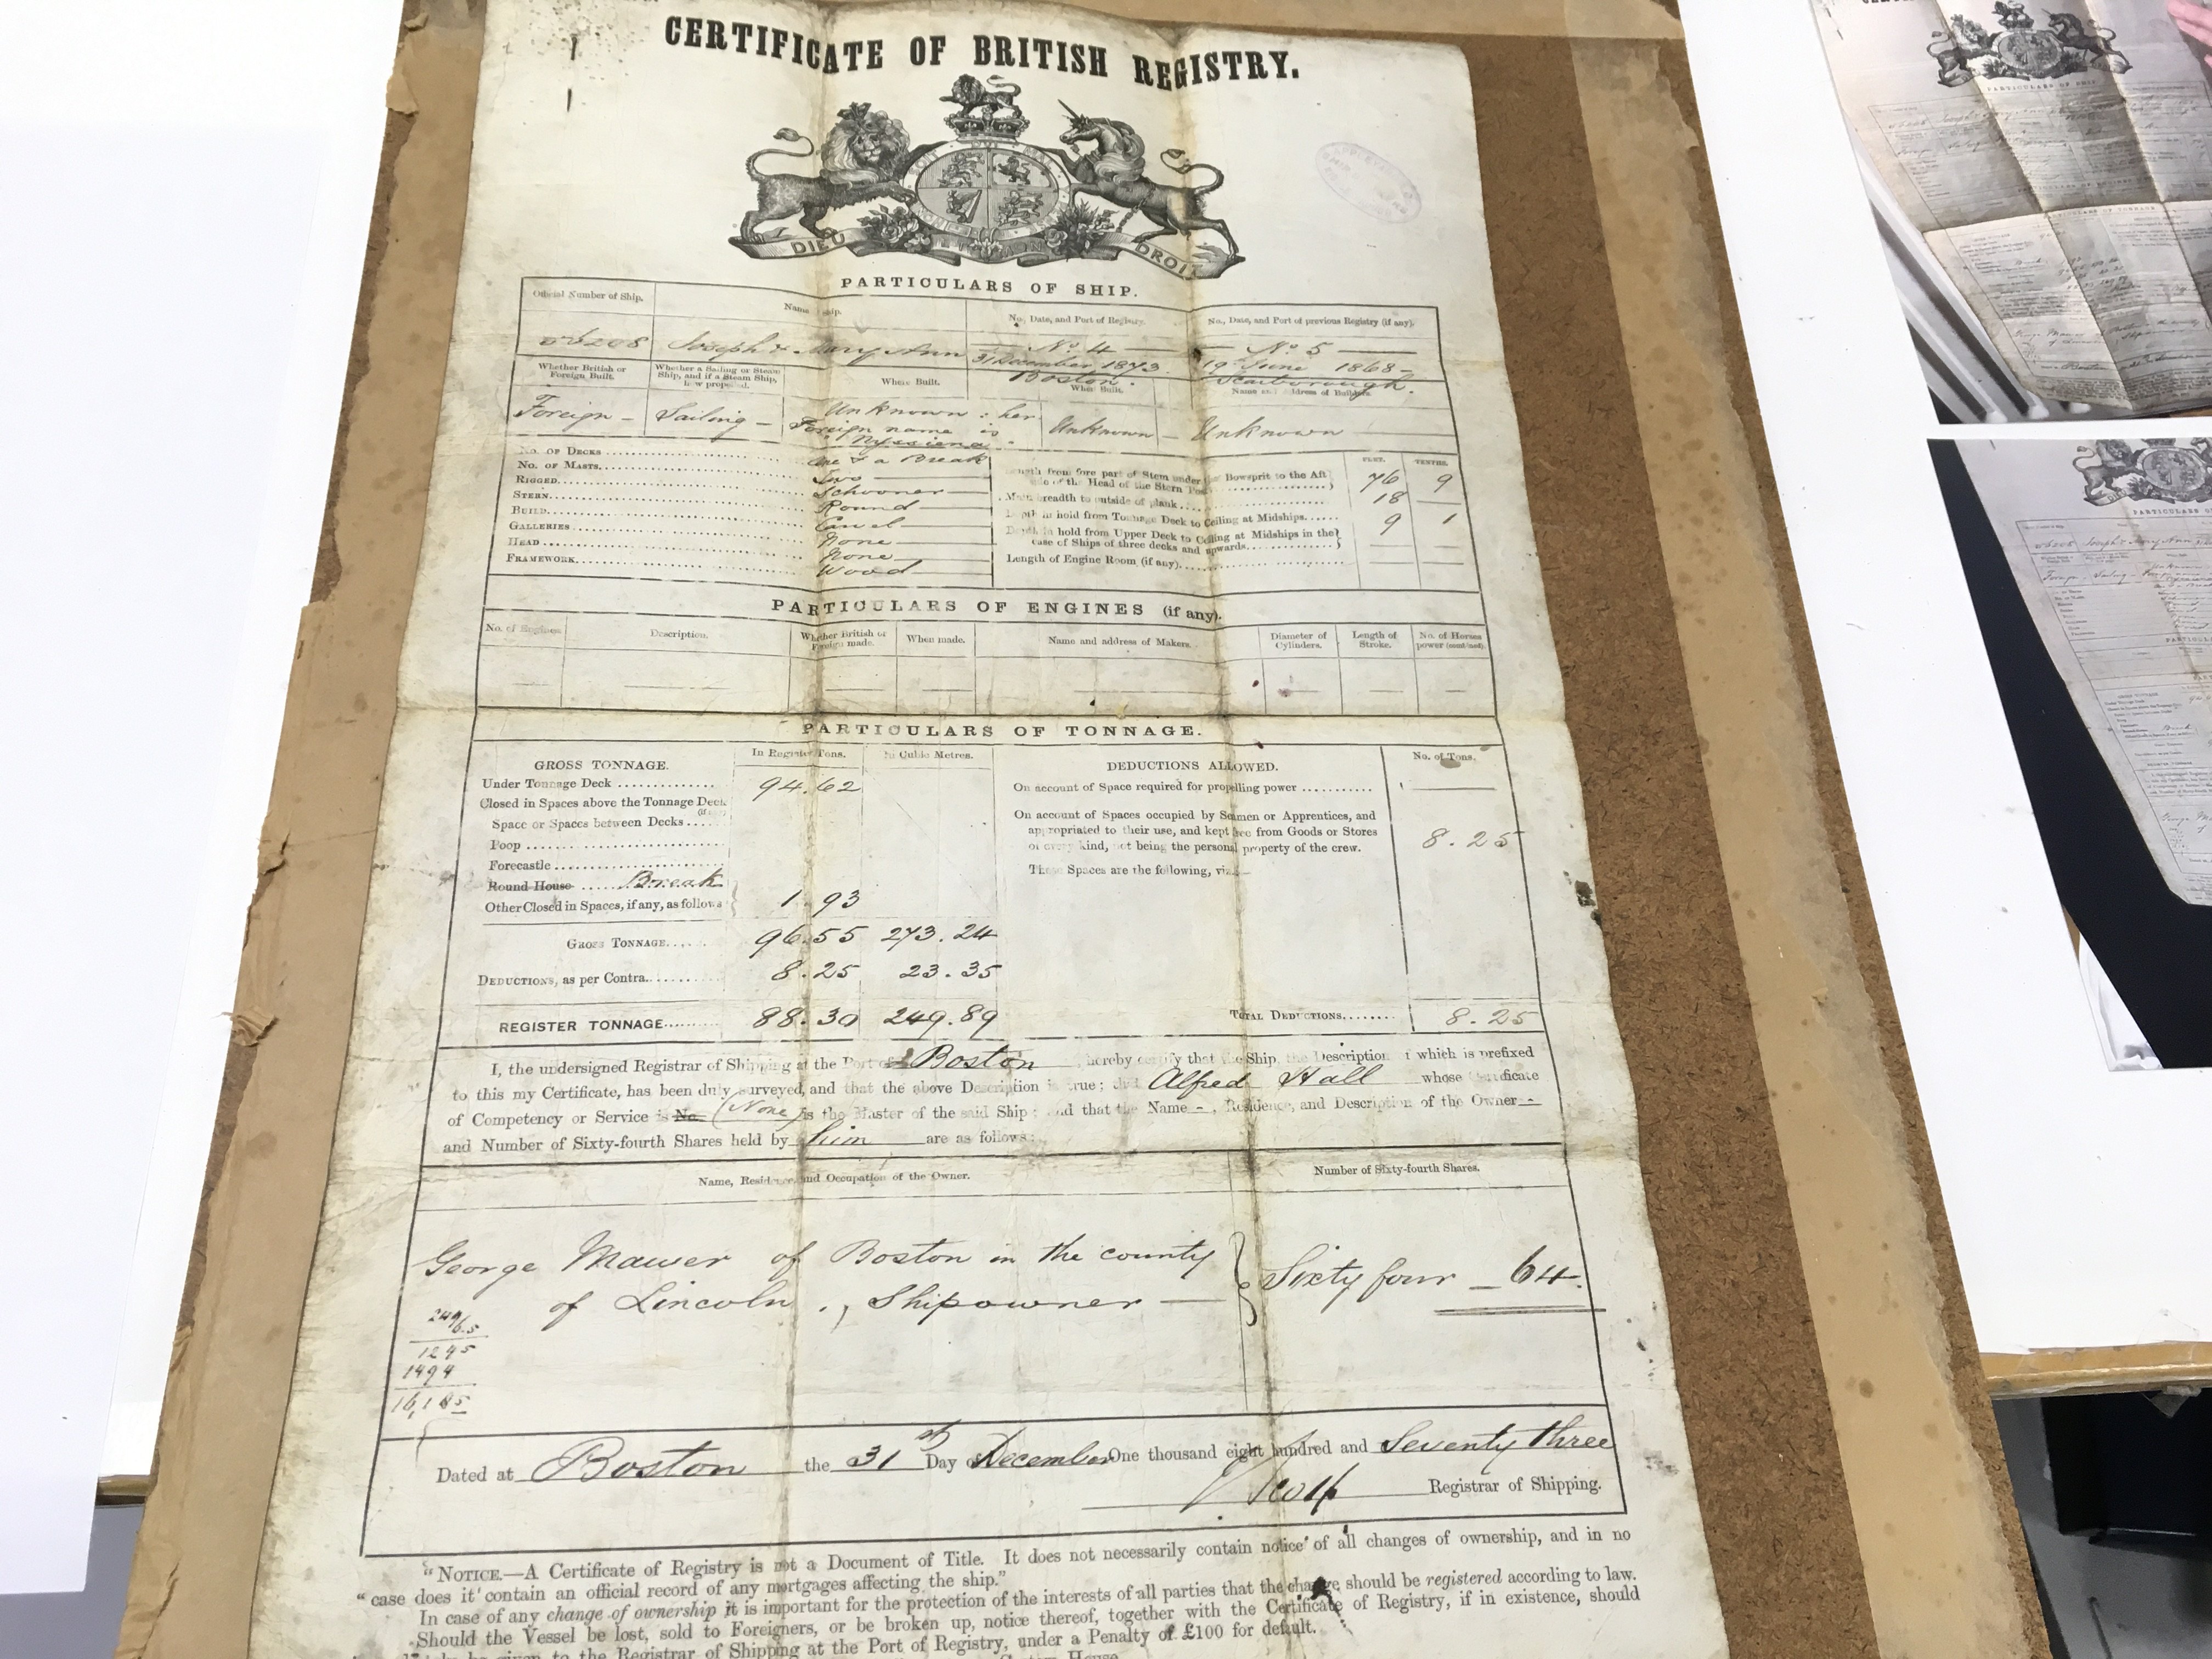 CERTIFICATE OF BRITISH REGISTRY.
DIEU ET MON DROIT
PARTICULARS OF SHIP.
Official Number of Ship. Name Ship. No., Date, and Port of Registry. No., Date, and Port of previous Registry (if any).
Joseph & Mary Ann No 4 No 5
31 December 1873. 19th June 1868
Boston. Scarborough.
Whether British or Foreign Built. Whether a Sailing or Steam Ship, and if a Steam Ship, how propelled. Where Built. When Built. Name and Address of Builders.
Foreign Sailing Unknown: her Unknown Unknown
Foreign name is
No. OF DECKS One & a Break
No. OF MASTS Two
RIGGED Schooner
STERN Round
BUILD Carvel
GALLERIES None
HEAD None
FRAMEWORK Wood
FEET. TENTHS.
Length from fore part of Stem under the Bowsprit to the Aft side of the Head of the Stern Post 76 9
Main breadth to outside of plank 18
Depth in hold from Tonnage Deck to Ceiling at Midships 9 1
Depth in hold from Upper Deck to Ceiling at Midships in the case of Ships of three decks and upwards
Length of Engine Room (if any)
PARTICULARS OF ENGINES (if any).
No. of Engines Description. Whether British or Foreign made. When made. Name and address of Makers. Diameter of Cylinders. Length of Stroke. No. of Horses power (combined)
PARTICULARS OF TONNAGE.
GROSS TONNAGE. In Register Tons. In Cubic Metres.
Under Tonnage Deck 94.62
Closed in Spaces above the Tonnage Deck
Space or Spaces between Decks
Poop
Forecastle
Round House Break
Other Closed in Spaces, if any, as follows 1.93
GROSS TONNAGE 96.55 273.24
DEDUCTIONS, as per Contra 8.25 23.35
REGISTER TONNAGE 88.30 249.89
DEDUCTIONS ALLOWED. No. of Tons.
On account of Space required for propelling power
On account of Spaces occupied by Seamen or Apprentices, and
appropriated to their use, and kept free from Goods or Stores
of every kind, not being the personal property of the crew. 8.25
These Spaces are the following, viz.
TOTAL DEDUCTIONS 8.25
I, the undersigned Registrar of Shipping at the Port of Boston hereby certify that the Ship, the Description of which is prefixed
to this my Certificate, has been duly surveyed, and that the above Description is true; that Alfred Hall whose Certificate
of Competency or Service is No. (None) is the Master of the said Ship; and that the Name, Residence, and Description of the Owner
and Number of Sixty-fourth Shares held by him are as follows:
Name, Residence, and Occupation of the Owner. Number of Sixty-fourth Shares.
George Mawer of Boston in the county Sixty four 64.
of Lincoln, Shipowner
249
65
1245
1494
16,185
Dated at Boston the 31st Day of December One thousand eight hundred and Seventy three
Registrar of Shipping.
"NOTICE.—A Certificate of Registry is not a Document of Title. It does not necessarily contain notice of all changes of ownership, and in no
"case does it contain an official record of any mortgages affecting the ship."
In case of any change of ownership it is important for the protection of the interests of all parties that the change should be registered according to law.
Should the Vessel be lost, sold to Foreigners, or be broken up, notice thereof, together with the Certificate of Registry, if in existence, should
be given to the Registrar of Shipping at the Port of Registry, under a Penalty of £100 for default.